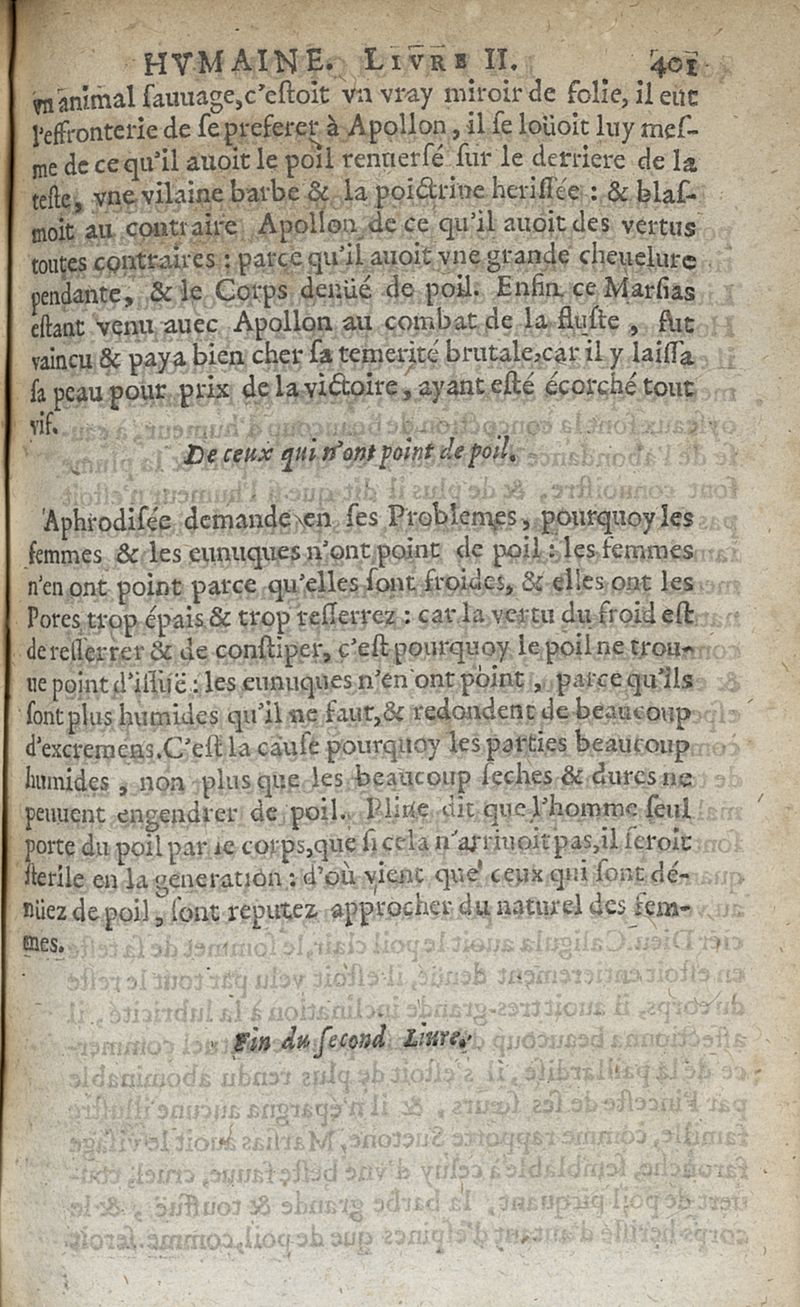 HVMAINE. LIVRE II. 401
vn animal sauuage, c'estoit vn vray miroir de folie, il eut
l'effronterie de se preferer à Apollon, il se loüoit luy mes-
me de ce qu'il auoit le poil renuersé sur le derriere de la
teste, vne vilaine barbe & la poictrine herissée : & blas-
moit au contraire Apollon de ce qu'il auoit des vertus
toutes contraires : parce qu'il auoit vne grande cheuelure
pendante, & le Corps denüé de poil. Enfin ce Marsias
estant venu auec Apollon au combat de la fluste , fut
vaincu & paya bien cher sa temerité brutale, car il y laissa
sa peau pour prix de la victoire, ayant esté écorché tout
vif.
De ceux qui n'ont point de poil.
Aphrodisée demande en ses Problemes, pourquoy les
femmes & les eunuques n'ont point de poil : les femmes
n'en ont point parce qu'elles sont froides, & elles ont les
Pores trop épais & trop resserrez : car la vertu du froid est
de resserrer & de constiper, c'est pourquoy le poil ne trou-
ue point d'issuë : les eunuques n'en ont point , parce qu'ils
sont plus humides qu'il ne faut, & redondent de beaucoup
d'excremens. C'est la cause pourquoy les parties beaucoup
humides , non plus que les beaucoup seches & dures ne
peuuent engendrer de poil. Pline dit que l'homme seul
porte du poil par le corps, que si cela n'arriuoit pas, il seroit
sterile en la generation : d'où vient que ceux qui sont dé-
nüez de poil, sont reputez approcher du naturel des fem-
mes.
Fin du second Liure.